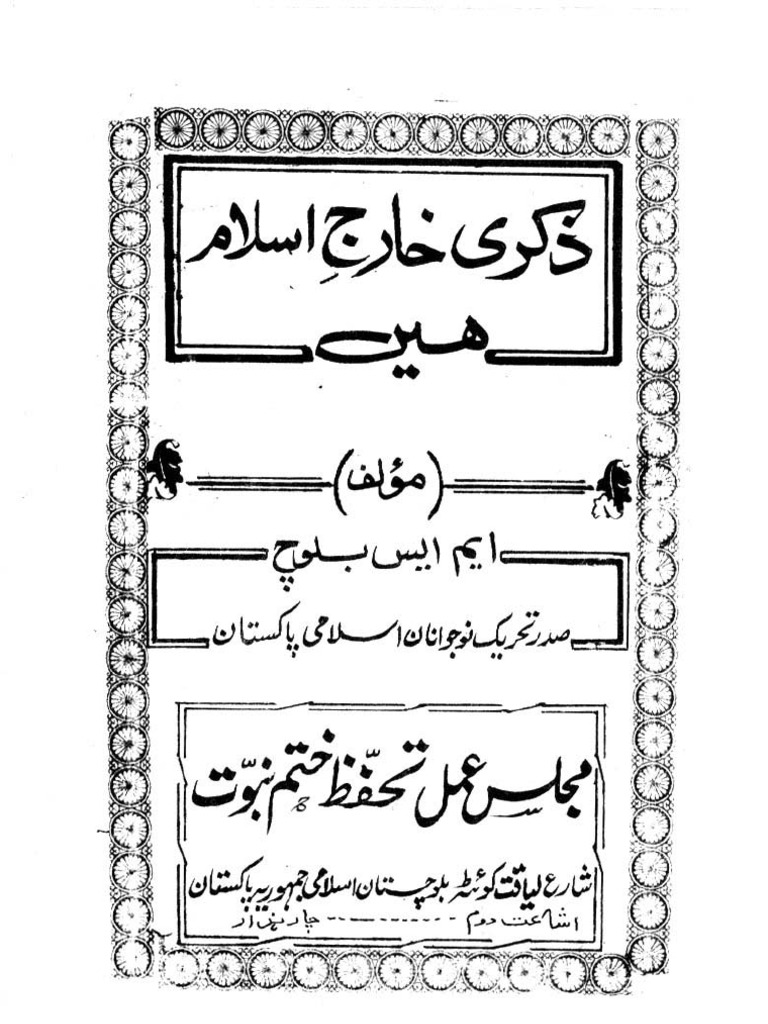 ذکری خارجِ اسلام
ہیں
(مؤلف)
ایم ایس بلوچ
صدر تحریک نوجوانان اسلامی پاکستان
مجلس عمل تحفّظ ختم نبوّت
شارع لیاقت کوئٹہ بلوچستان اسلامی جمہوریہ پاکستان
اشاعت دوم ---------- چار ہزار